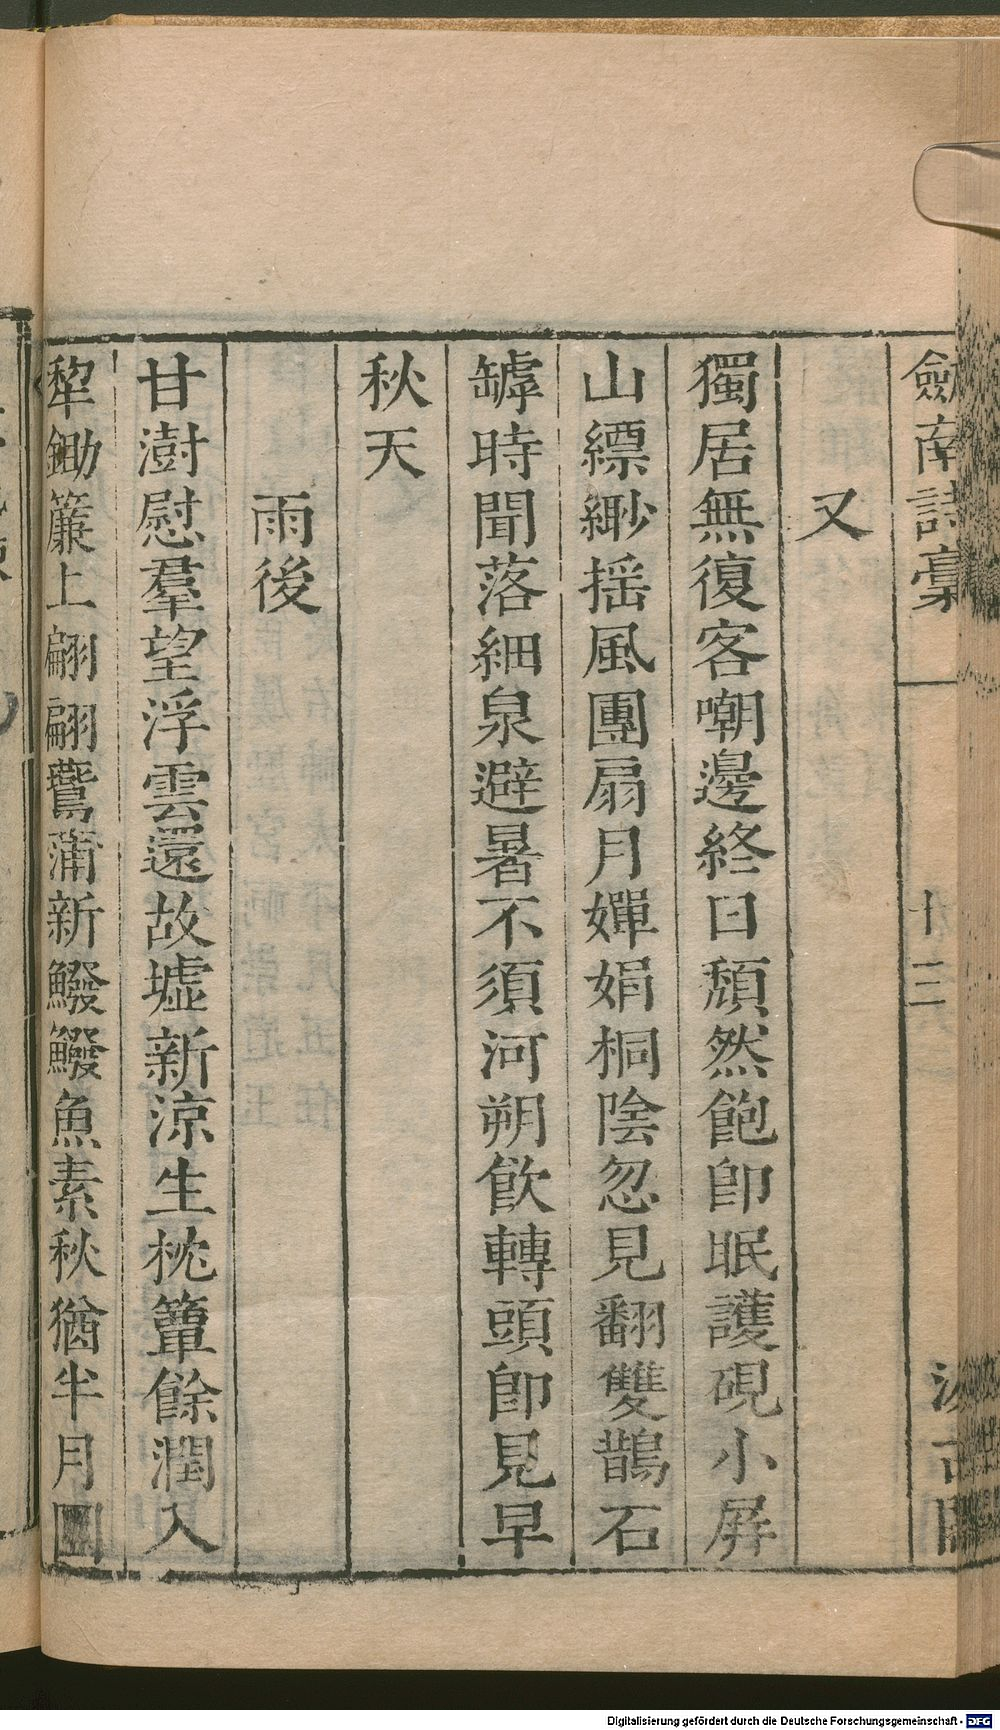 劒南詩稾
十三
汲古閣
又
獨居無復客嘲邊終日頹然飽卽眠護硯小屏
山縹緲揺風團扇月嬋娟桐陰忽見翻雙鵲石
罅時聞落細泉避暑不須河朔飲轉頭卽見早
秋天
雨後
甘澍慰羣望浮雲還故墟新涼生枕簟餘潤入
犂鋤簾上翩翩鷰蒲新鱍鱍魚素秋猶半月團
Digitalisierung gefördert durch die Deutsche Forschungsgemeinschaft - DFG